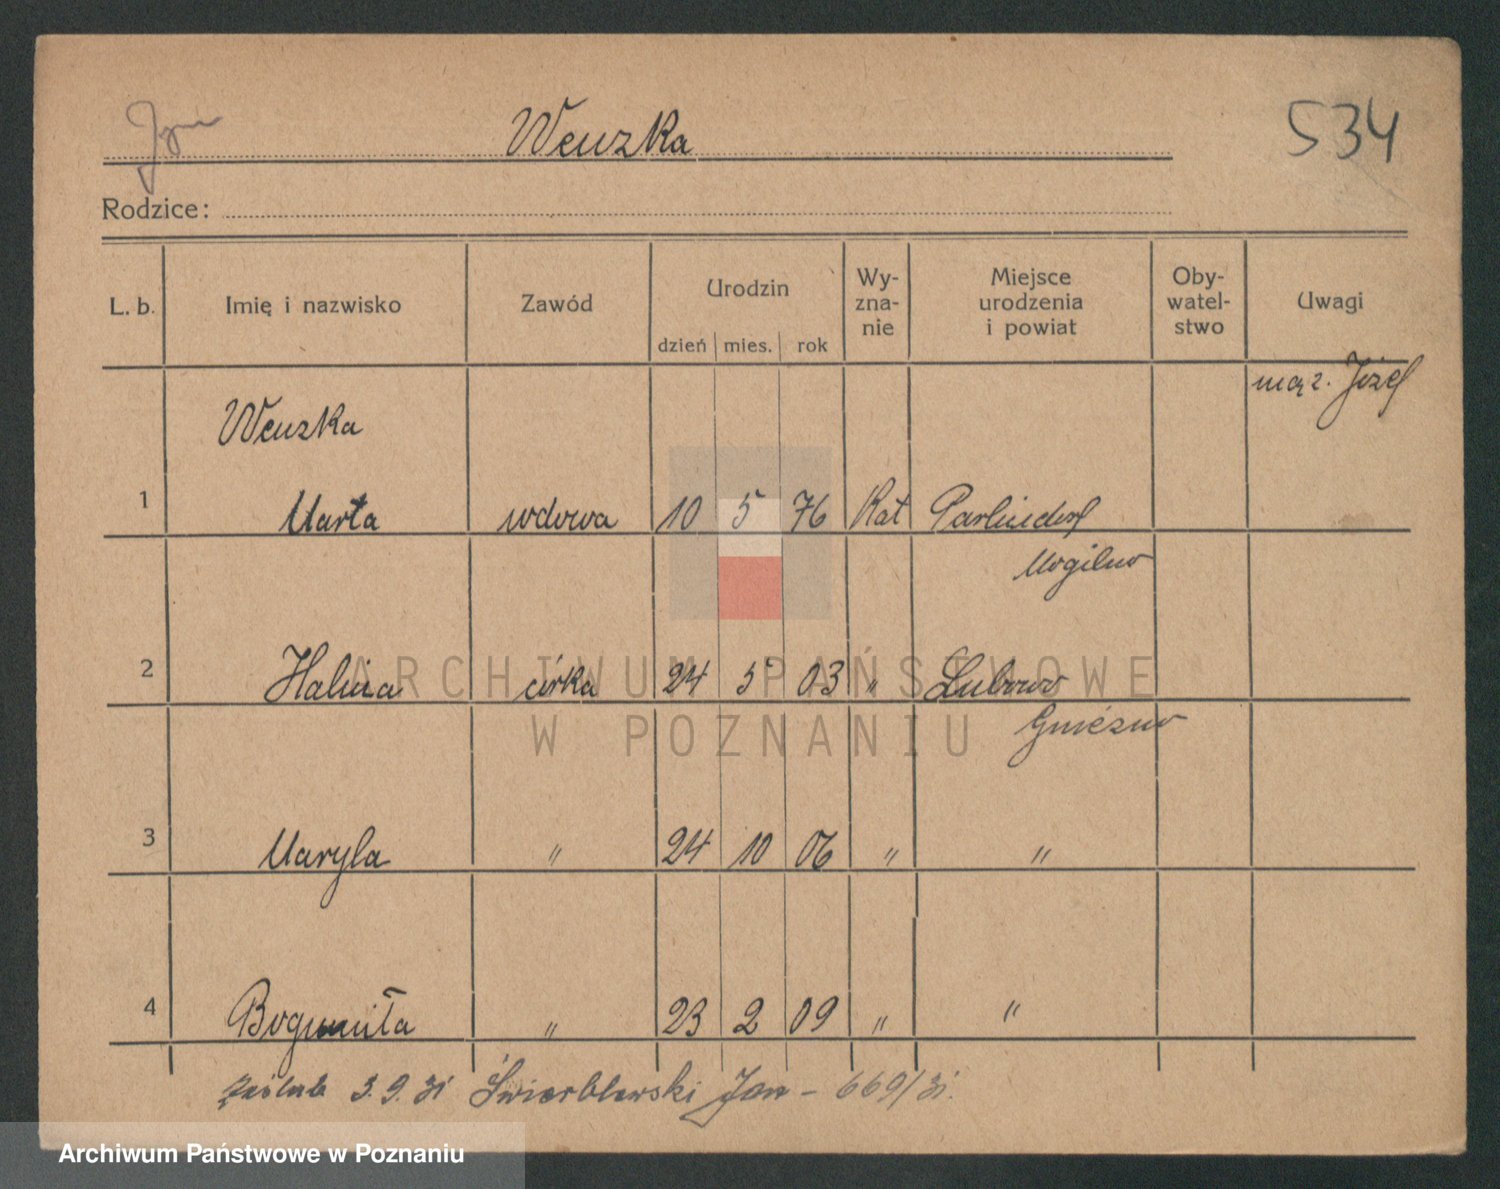 Wenzka
534
Rodzice:
L. b. Imię i nazwisko Zawód Urodzin dzień mies. rok Wy-zna-nie Miejsce urodzenia i powiat Oby-watel-stwo Uwagi
mąż. Józef
Wenzka
1 Marta wdowa 10 5 76 Kat Parlindorf
Mogilno
2 Halina córka 24 5 03 " Łubowo
Gniezno
3 Maryla " 24 10 06 " "
4 Bogumiła " 23 2 09 " "
zaślub 3.9.31 Świerblewski Jan - 669/31.
ARCHIWUM PAŃSTWOWE
W POZNANIU
Archiwum Państwowe w Poznaniu